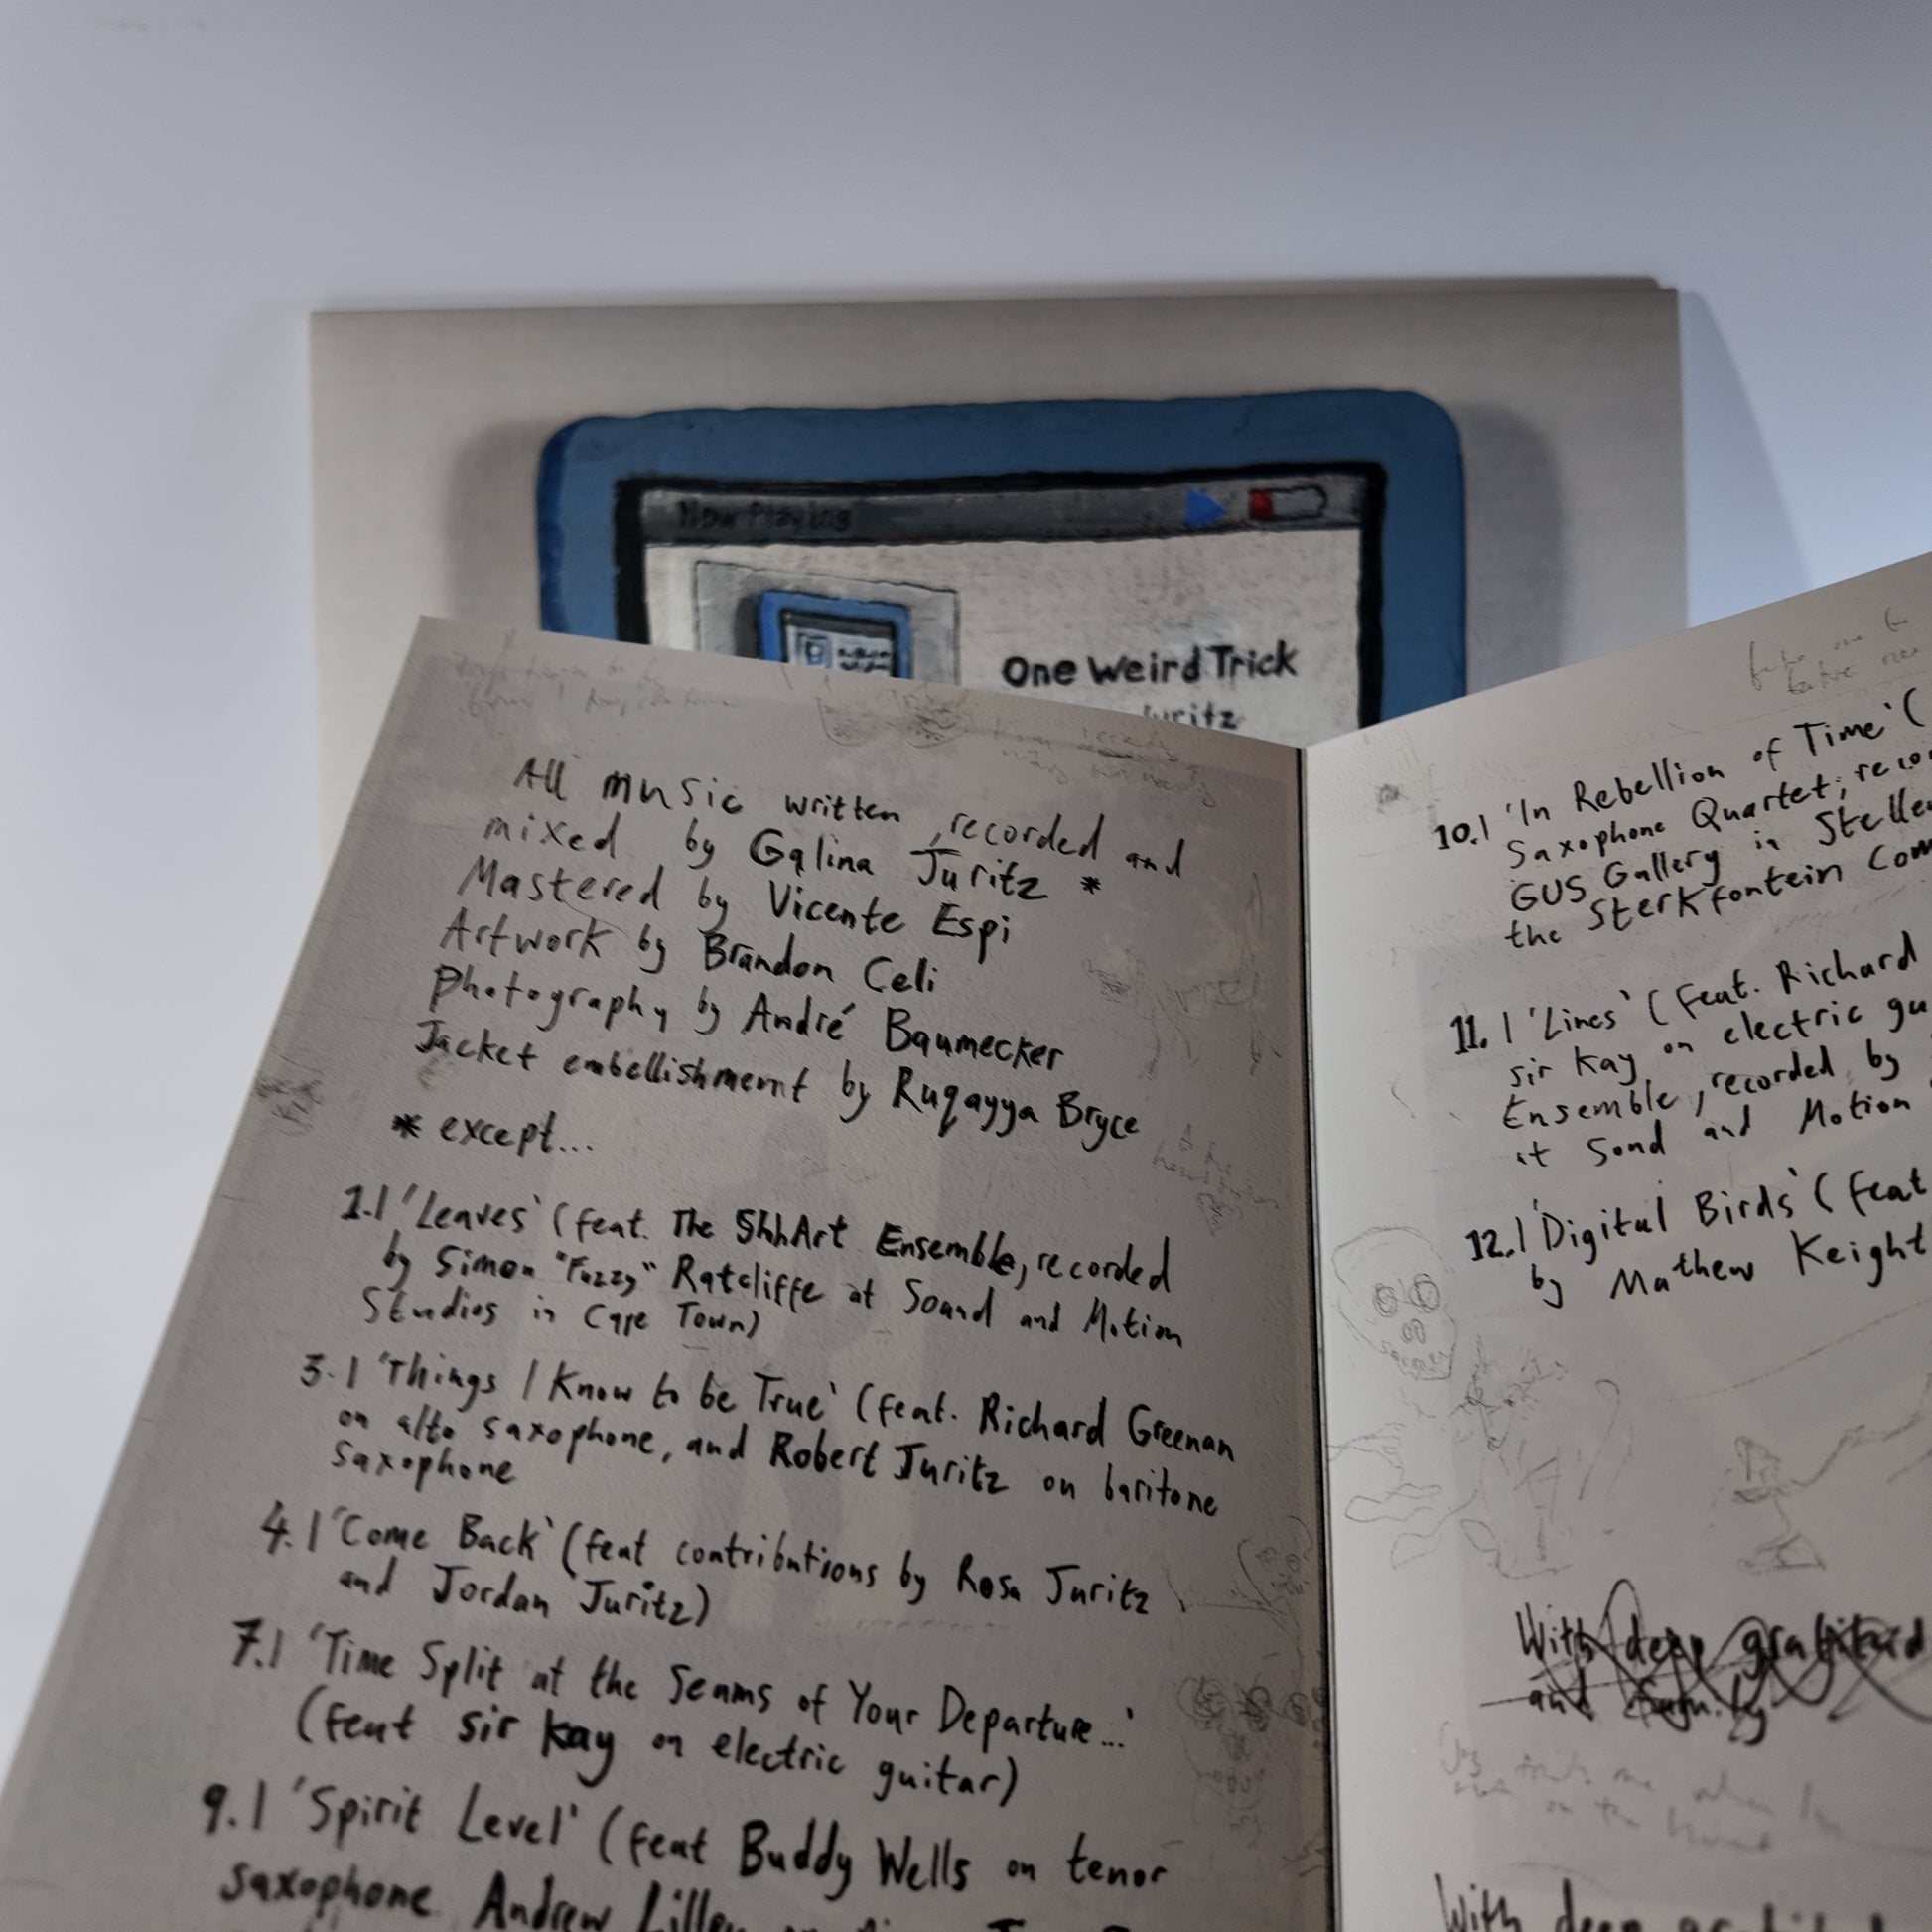 Now Playing
One Weird Trick
All music written, recorded and
mixed by Galina Juritz *
Mastered by Vicente Espi
Artwork by Brandon Celi
Photography by André Baumecker
Jacket embellishment by Ruqayya Bryce
* except...
1.| 'Leaves' (feat. The ShhArt Ensemble, recorded
by Simon "Fuzzy" Ratcliffe at Sound and Motion
Studios in Cape Town)
3.| 'Things I Know to be True' (feat. Richard Greenan
on alto saxophone, and Robert Juritz on baritone
saxophone
4.| 'Come Back' (feat contributions by Rosa Juritz
and Jordan Juritz)
7.| 'Time Split at the Seams of Your Departure...'
(feat sir kay on electric guitar)
9.| 'Spirit Level' (feat Buddy Wells on tenor
saxophone Andrew
10.| 'In Rebellion of Time' (
Saxophone Quartet, reco
GUS Gallery in Stelle
the Sterkfontein Com
11.| 'Lines' (feat. Richard
sir kay on electric gu
Ensemble, recorded by
at Sond and Motion
12.| 'Digital Birds' (feat
by Mathew Keight
With deep gratitud
and family
With deep